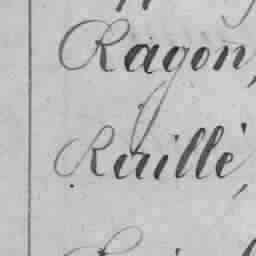 Ragon,
Raillé,